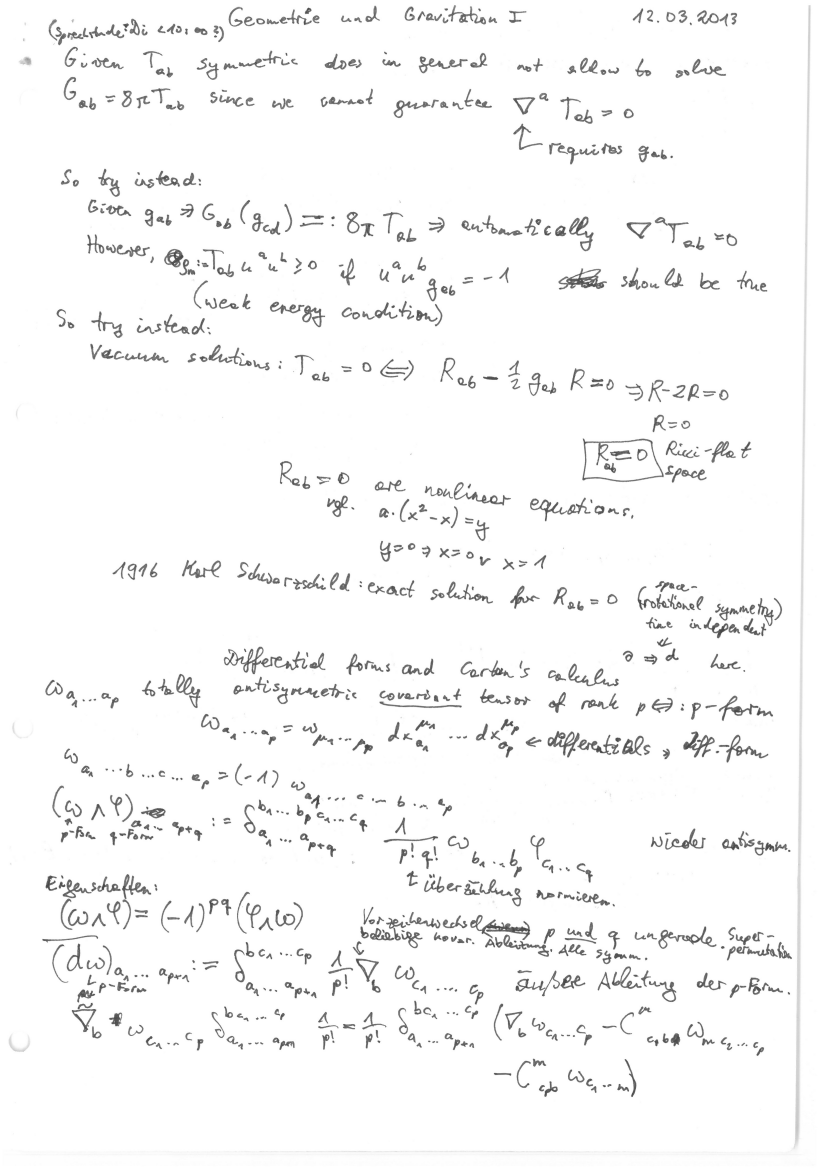 Geometrie und Gravitation I 12.03.2013
(Sprechstunde: Di <10:00?)
Given T_ab symmetric does in general not allow to solve
G_ab = 8π T_ab since we cannot guarantee ∇^a T_ab = 0
↑ requires g_ab.
So try instead:
Given g_ab ⇒ G_ab (g_cd) =: 8π T_ab ⇒ automatically ∇^a T_ab = 0
However, ρ_m := T_ab u^a u^b ≥ 0 if u^a u^b g_ab = -1 should be true
(weak energy condition)
So try instead:
Vacuum solutions: T_ab = 0 ⇔ R_ab - 1/2 g_ab R = 0 ⇒ R-2R=0
R=0
R_ab = 0 Ricci-flat
space
R_ab = 0 are nonlinear equations.
vgl. a·(x²-x) = y
y=0 ⇒ x=0 ∨ x=1
1916 Karl Schwarzschild: exact solution for R_ab = 0 (space-
rotational symmetry)
time independent
∂ ⇒ d here.
Differential forms and Cartan's calculus
ω_{a_1...a_p} totally antisymmetric covariant tensor of rank p ⇔: p-form
ω_{a_1...a_p} = ω_{μ_1...μ_p} dx^{μ_1}_{a_1} ... dx^{μ_p}_{a_p} ← differentials, diff.-form
ω_{a_1...b...c...a_p} = (-1) ω_{a_1...c...b...a_p}
(ω∧φ)_{a_1...a_{p+q}} := δ^{b_1...b_p c_1...c_q}_{a_1...a_{p+q}} 1/(p!q!) ω_{b_1...b_p} φ_{c_1...c_q} wieder antisymm.
p-Form q-Form
↑ überzählung normieren.
Eigenschaften:
(ω∧φ) = (-1)^{pq} (φ∧ω)
Vorzeichenwechsel p und q ungerade. Super-
permutation
beliebige kovar. Ableitung. Alle symm.
(dω)_{a_1...a_{p+1}} := δ^{b c_1...c_p}_{a_1...a_{p+1}} 1/p! ∇_b ω_{c_1...c_p} äußere Ableitung der p-Form.
p-Form
∇̃_b ω_{c_1...c_p} δ^{b c_1...c_p}_{a_1...a_{p+1}} 1/p! = 1/p! δ^{b c_1...c_p}_{a_1...a_{p+1}} (∇_b ω_{c_1...c_p} - C^m_{c_1 b} ω_{m c_2...c_p}
- C^m_{c_p b} ω_{c_1...m})